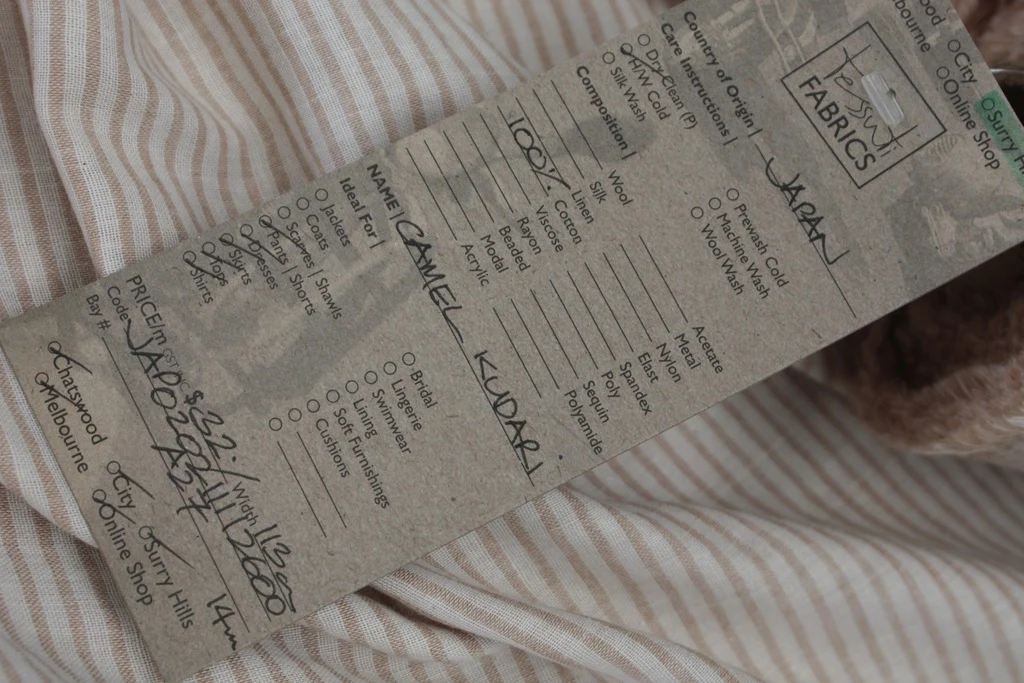 ood
bourne
City
Online Shop
Surry H
tessuti
FABRICS
Country of Origin | JAPAN
Care Instructions |
Dry Clean (P)
H/W Cold
Silk Wash
Prewash Cold
Machine Wash
Wool Wash
Composition |
Wool
Silk
Linen
100% Cotton
Viscose
Rayon
Beaded
Modal
Acrylic
Acetate
Metal
Nylon
Elast
Spandex
Poly
Sequin
Polyamide
NAME | CAMEL KUDARI
Ideal For |
Jackets
Coats
Scarves | Shawls
Pants | Shorts
Dresses
Skirts
Tops
Shirts
Bridal
Lingerie
Swimwear
Lining
Soft Furnishings
Cushions
PRICE/m $32/ Width 113cm
Code
Bay #: A27 14m
Chatswood
Melbourne
City
Online Shop
Surry Hills